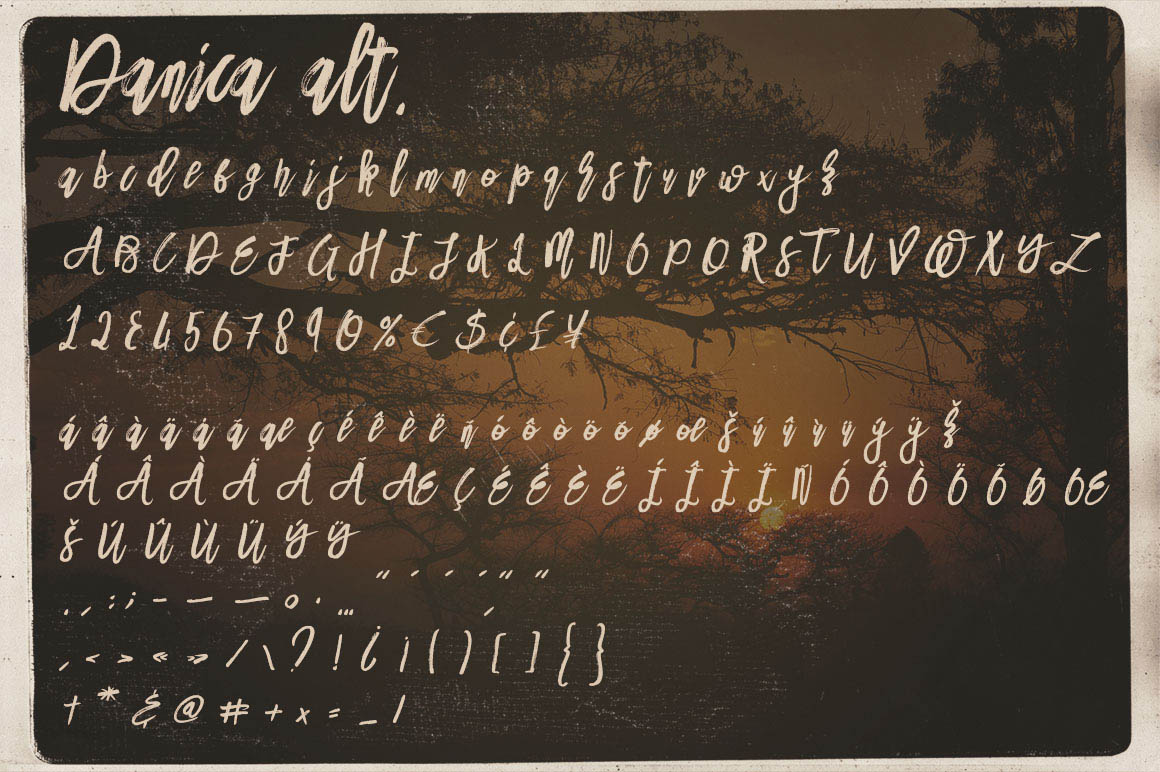 Danica alt.
a b c d e f g h i j k l m n o p q r s t u v w x y z
A B C D E F G H I J K L M N O P Q R S T U V W X Y Z
1 2 3 4 5 6 7 8 9 0 % € $ ¢ £ ¥
á â à ä å ã æ ç é ê è ë ñ ó ô ò ö õ ø œ š ú û ù ü ý ÿ ž
Á Â À Ä Å Ã Æ Ç É Ê È Ë Í Î Ì Ï Ñ Ó Ô Ò Ö Õ Ø Œ
Š Ú Û Ù Ü Ý Ÿ
. , : ; - – — ° · … " ' ‘ ’ “ ” ‚
‚ ‹ › « » / \ ? ! ¿ ¡ ( ) [ ] { }
† * & @ # + × = _ |